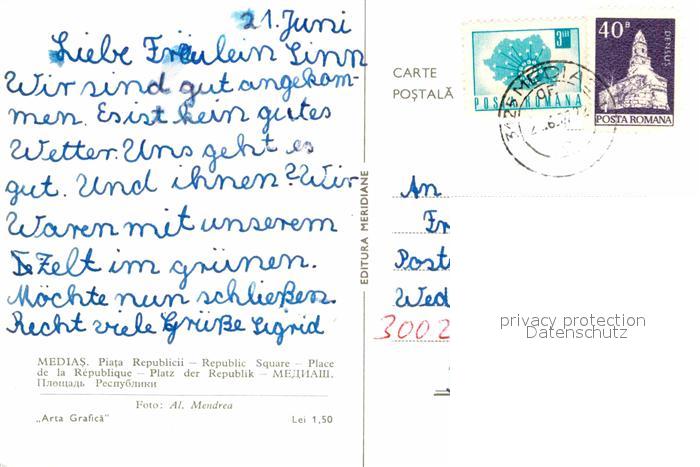 21. Juni
Liebe Fräulein Linn
Wir sind gut angekom-
men. Es ist kein gutes
Wetter. Uns geht es
gut. Und ihnen? Wir
Waren mit unserem
Zelt im grünen.
Möchte nun schließen.
Recht viele Grüße Sigrid
MEDIAŞ. Piaţa Republicii – Republic Square – Place
de la République – Platz der Republik – МЕДИАШ.
Площадь Республики
Foto: Al. Mendrea
„Arta Grafică”
Lei 1,50
EDITURA MERIDIANE
CARTE
POŞTALĂ
3 LEI
POSTA ROMANA
40 B
DENSUS
POSTA ROMANA
MEDIAŞ
An
Fr
Post
Wed
3002
privacy protection
Datenschutz